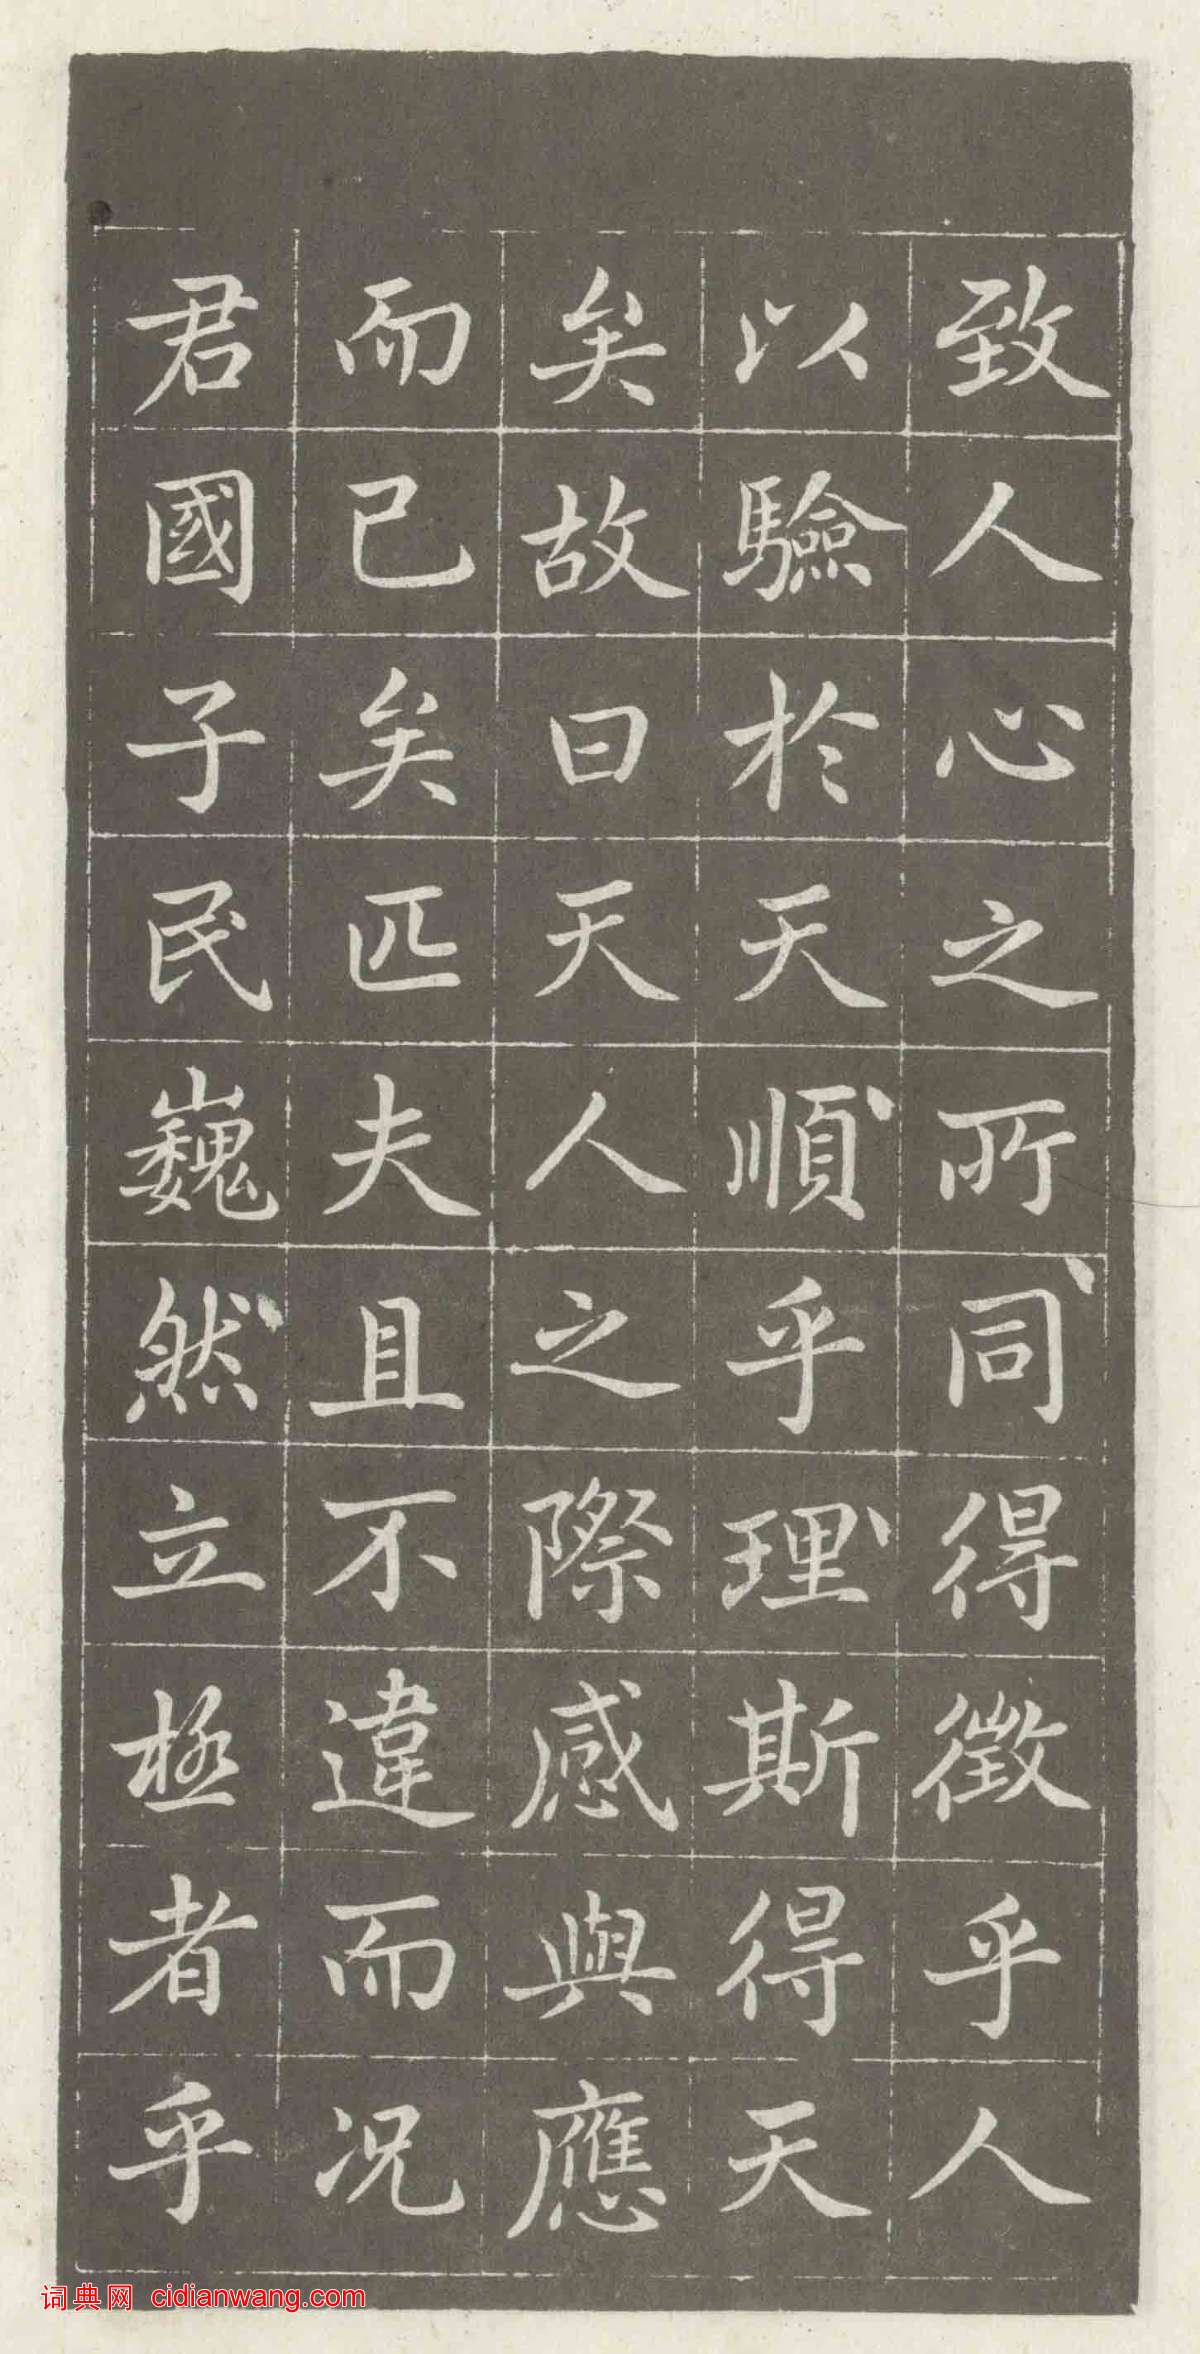 致人心之所同得徵乎人
以驗於天順乎理斯得天
矣故曰天人之際感與應
而已矣匹夫且不違而况
君國子民巍然立極者乎
词典网 cidianwang.com